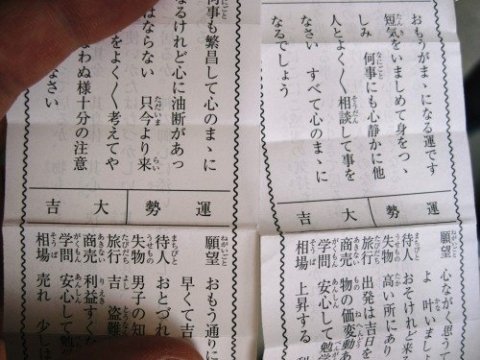 おもうがまゝになる運です
短気をいましめて身をつゝ
しみ 何事にも心静かに他
人とよく〱相談して事を
なさい すべて心のまゝに
なるでしょう
願望 心ながく思うて
よ 叶いま
待人 おそけれど来
失物 高い所にあり
旅行 出発は吉日を
商売 物の価変動あ
学問 安心して勉
相場 上昇する
何事も繁昌して心のまゝに
なるけれど心に油断があっ
はならない 只今より来
をよく〱考えてや
わぬ様十分の注意
なさい
運勢 大吉
願望 おもう通りに
早くて吉
待人 おとづれ
失物 男子の知
旅行 吉 盗難
商売 利益すくな
学問 安心して勉
相場 売れ 少しは